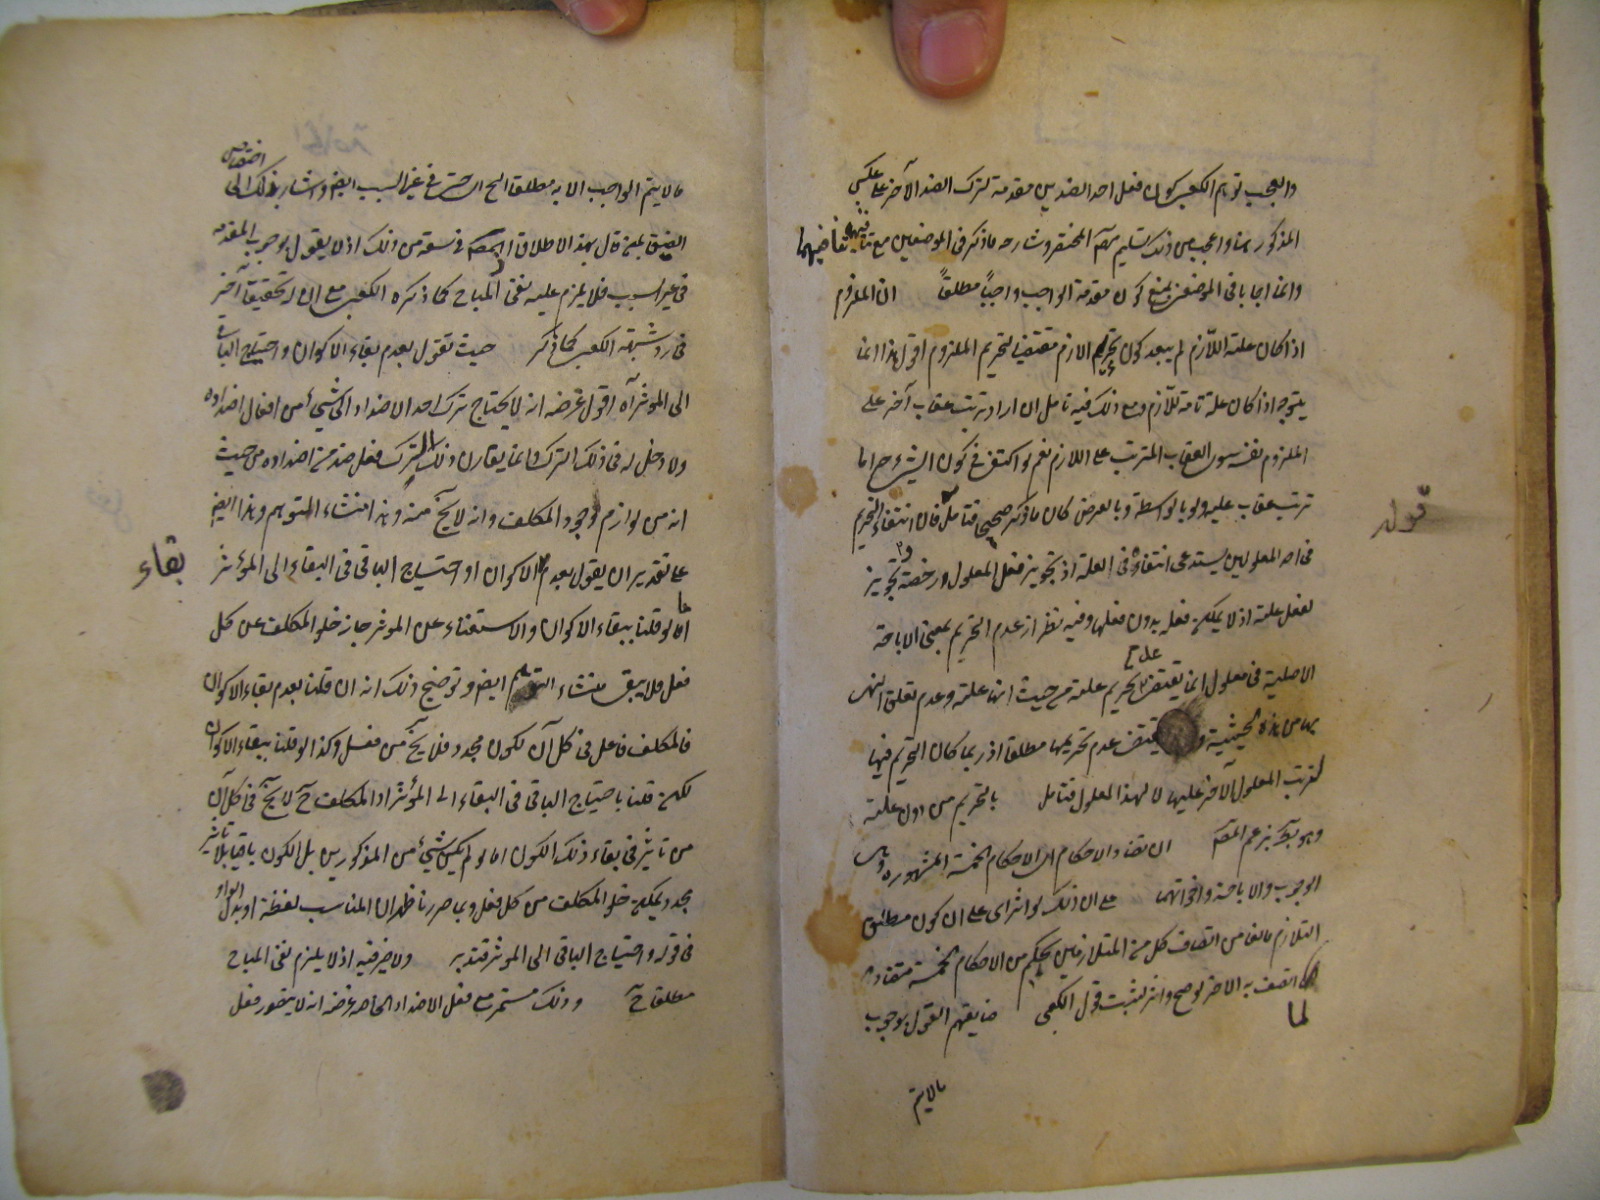 والعجب توهم الكعبي كون فعل احد الضدين مقدمة لترك الضد الآخر على عكس
المذكور هنا واعجب من ذلك تسليم المختصر وشارحه ما ذكر في الموضعين مع تنافيهما
وانما اجابا في الموضعين بمنع كون مقدمة الواجب واجباً مطلقاً ان الملزوم
اذا كان علة اللازم لم يبعد كون تحريم الازم مقتضيا لتحريم الملزوم اقول هذا انما
يتوجه اذا كان علة تامة للازم ومع ذلك فيه تامل ان اراد ترتب عقاب آخر على
الملزوم نفسه سوى العقاب المترتب على اللازم نعم لو اكتفى في كون الشيء حراما
ترتب عقاب عليه ولو بالواسطة وبالعرض كان ما ذكره صحيحا فتامل فان انتفاء التحريم
قوله
في احد المعلولين يستدعى انتفاءه في العلة اذ تجويز فعل المعلول ورخصة تجويز
لفعل علته اذ لا يمكن فعله بدون فعلها وفيه نظر اذ عدم التحريم بمعنى الاباحة
الاصلية في معلول انما يقتضى عدم تحريم علته من حيث انها علته وعدم تعلق النهى
بها من هذه الحيثية و يقتضى عدم تحريمها مطلقا اذ ربما كان التحريم فيها
لترتب المعلول الآخر عليها لا لهذا المعلول فتامل بالتحريم من دون علته
وهو بزعم ان تضاد الاحكام اى الاحكام الخمسة المشهورة وهى
الوجوب والاباحة واخواتهما على ان ذلك لو اثر اى على ان كون مطلق
التلازم مانعا من اتصاف كل من المتلازمين بحكم من الاحكام الخمسة متضادة
لما اتصف به الاخر لو صح واثر لثبت قول الكعبى ضايقهم القول بوجوب
ما لا يتم
ما لا يتم الواجب الا به مطلقا الخ اى حتى في غير السبب ايضا واشار بذلك الى اختصاص
الضيق بمن قال بهذا الاطلاق في سعة من ذلك اذ لا يقول بوجوب المقدمة
في غير السبب فلا يلزم عليه نفى المباح كما ذكره الكعبى مع ان له تحقيقا آخر
في رد شبهة الكعبى كما ذكر حيث نقول بعدم بقاء الاكوان واحتياج الباقى
الى المؤثر آه اقول غرضه انه لا يحتاج ترك احد الاضداد الى شيء من افعال اضداده
ولا دخل له في ذلك الترك وانما يقارن ذلك الترك فعل ضد من اضداده من حيث
انه من لوازم وجود المكلف وانه لا يخ منه وهذا منشاء التوهم وهذا ايضا
على تقدير ان يقول بعدم الاكوان او احتياج الباقى في البقاء الى المؤثر
بقاء
اما لو قلنا ببقاء الاكوان والاستغناء عن المؤثر جاز خلو المكلف عن كل
فعل فلا يبقى منشاء التوهم ايضا وتوضيح ذلك انه ان قلنا بعدم بقاء الاكوان
فالمكلف فاعل في كل آن لكون مجدد فلا يخ من فعل وكذا لو قلنا ببقاء الاكوان
لكن قلنا باحتياج الباقى في البقاء الى المؤثر اذ المكلف ح لا يخ في كل آن
من تاثير في بقاء ذلك الكون اما لو لم يكن شيء من المذكورين بل الكون باقيا بلا تاثير
مجدد يمكن خلو المكلف من كل فعل وبما صررنا ظهر ان المناسب لفظة او بدل الواو
في قوله واحتياج الباقى الى المؤثر فتدبر ولا ضير فيه اذ لا يلزم نفى المباح
مطلقا ح وذلك مستمر مع فعل الاضداد الخاصه غرضه انه لا يتصور فعل